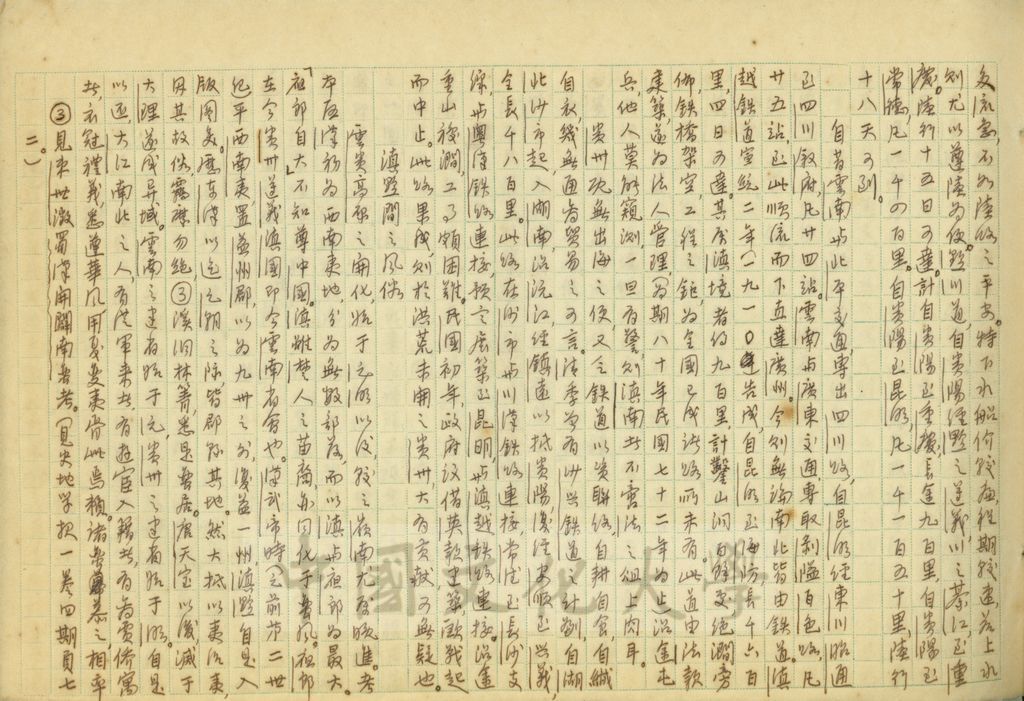 灸流急,不如陸路之平安。特下水船價較廉,程期較速,若上水
則尤以遵陸為便。黔川道,自貴陽經黔之遵義,川之綦江,至重
慶。陸行十五日可達。計自貴陽至重慶,長金九百里,自貴陽至
常德凡一千四百里。自貴陽至昆明,凡一千一百五十里,陸行
十八天可到。
自昔雲南與北平交通專出四川路,自昆明經東川昭通
至四川敘府凡廿四站。雲南與廣東交通專取剝隘百色路,凡
廿五站,至此順流而下直達廣州。今則無論南北皆由鐵道。滇
越鐵道宣統二年(一九一〇年)告成,自昆明至海防長千六百
里,四日可達。其在滇境者約九百里,計鑿山洞百餘處絕澗旁
佈鐵橋架空,工程之鉅,為全國已成諸路所未有。此道由法款
建築遂為法人管理,為期八十年民國七十二年為止。沿途屯
兵,他人莫能窺測,一旦有警,則滇南者不啻法之俎上肉耳。
貴州既無出海之便,又乏鐵道以資聯絡,自耕自食,自緘
自衣,幾無通商貿易之可言。清季曾有沙興鐵道之計劃,自湖
北沙市起,入湖南,沿沅江經鎮遠以抵貴陽,復經安順至興義,
全長千八百里。此路在沙市與川漢鐵路連接,常德至長沙支
線,與粵漢鐵路連接,款令展築至昆明,與滇越鐵路連接。沿途
重山複澗,工事頗困難。民國初年,政府議借英款建築,歐戰起
而中止。此路果成,則於洪荒未開之貴州,大有貢獻可無疑也。
滇黔間之風俗
雲貴高原之開化,始于元明以後,較之嶺南尤為晚進。考
本區漢初為西南夷地,分為無數部落,而以滇與夜郎為最大。
「夜郎自大」不知尊中國。滇雖楚人之苗裔,亦同化于蠻風。夜郎
在今貴州遵義,滇國即今雲南省會也。漢武帝時(元前第二世
紀)平西南夷置益州郡,以為九州之外復益一州,滇黔自是入
版圖矣。歷東漢以迄元朝之際,皆郡縣其地。然大抵以夷治夷,
因其故俗,羈縻勿絕③溪洞林箐悉是蠻居。唐天寶以後,滅于
大理,遂成異域。雲南之建省始于元,貴州之建省始于明。自是
以還,大江南北之人,有從軍來者,有遊宦入籍者,有為賈僑寓
者,衣冠禮義悉遵華風,用夏變夷,胥此焉賴。諸蠻慕之,相率
③見朱世澂蜀漢開闢南蠻考。(見史地學報一卷四期頁七
二。)